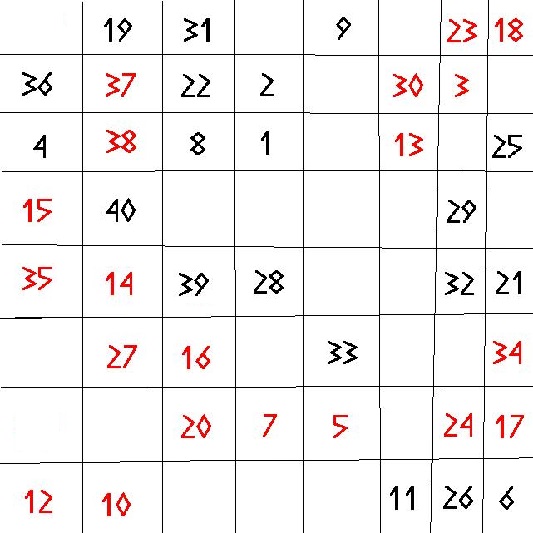 19 31 9 23 18
36 37 22 2 30 3
4 38 8 1 13 25
15 40 29
35 14 39 28 32 21
27 16 33 34
20 7 5 24 17
12 10 11 26 6